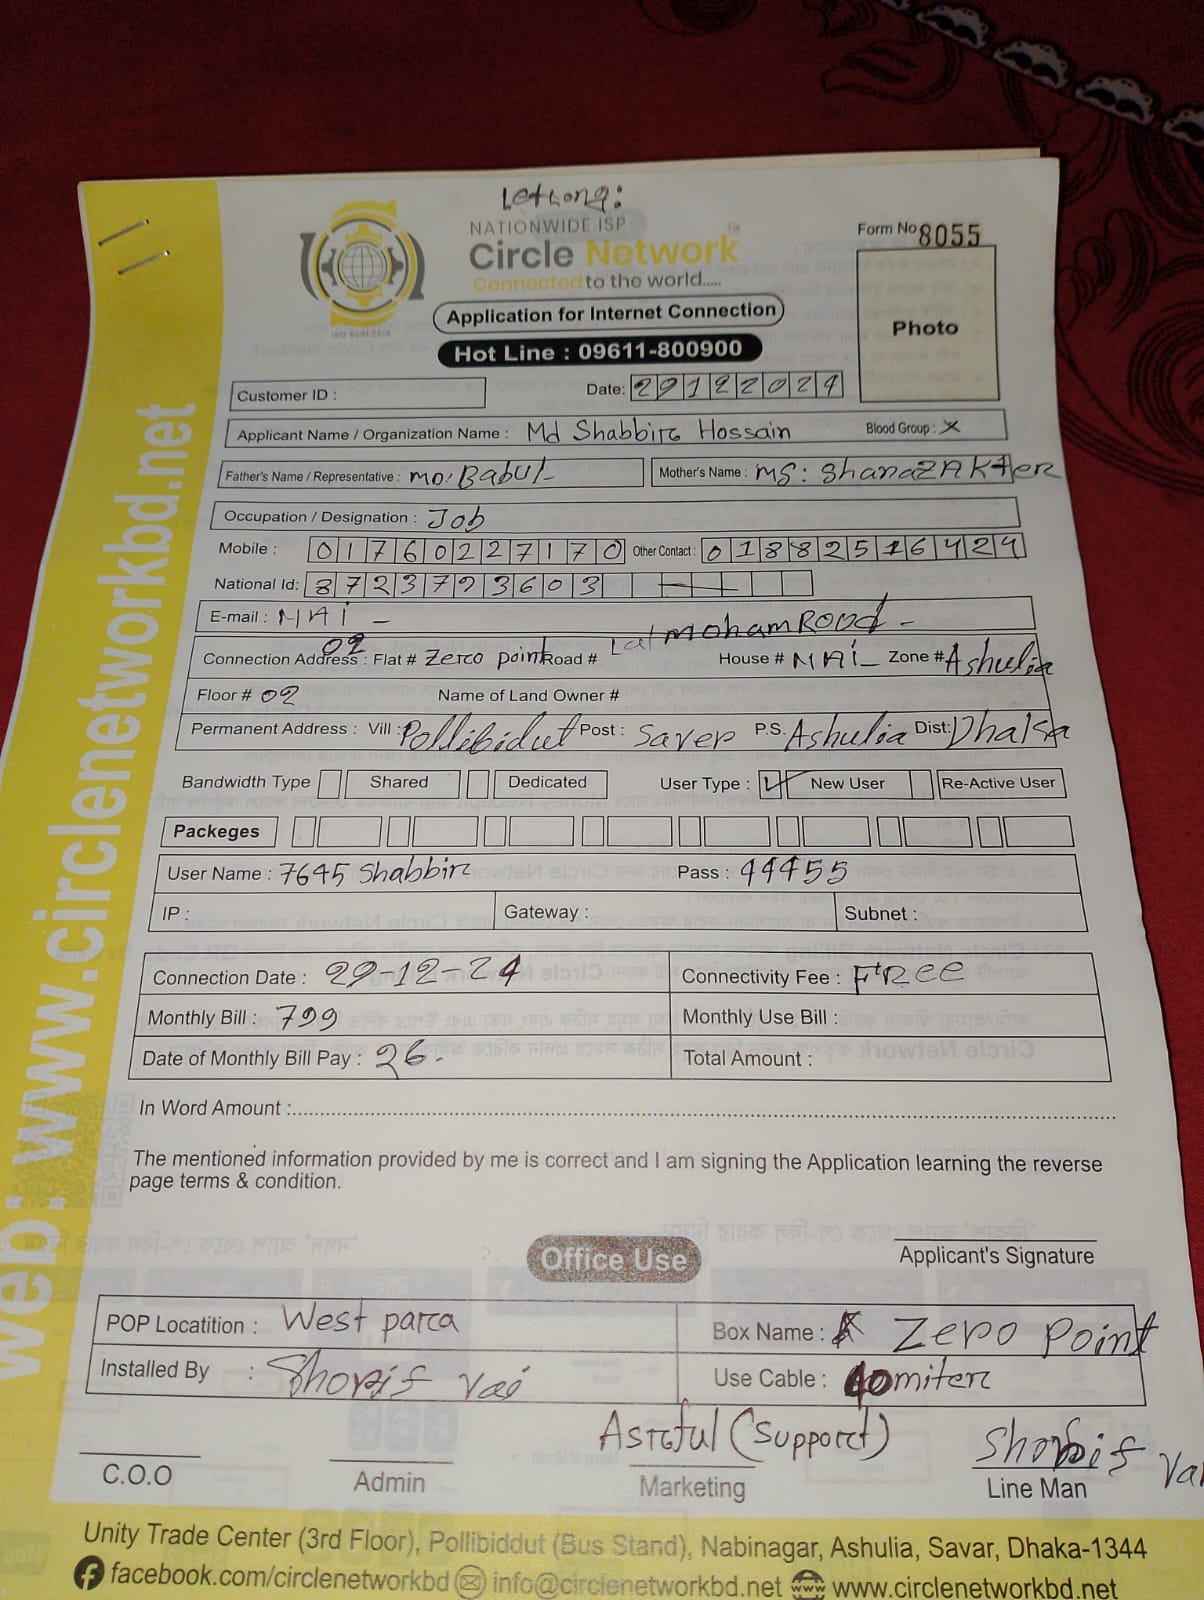 Lethong:
NATIONWIDE ISP
Circle Network
Connected to the world.....
Form No 8055
Application for Internet Connection
Photo
Hot Line : 09611-800900
Customer ID :
Date: 29122024
Applicant Name / Organization Name : Md Shabbir Hossain
Blood Group : X
Father's Name / Representative : MD: Babul
Mother's Name : MS: ShanaZ AKter
Occupation / Designation : Job
Mobile : 01760227170 Other Contact : 01882516424
National Id: 3723793603
E-mail : NAi -
Connection Address : Flat # 02 Zero point Road # Lal moham ROOd - House # NAi - Zone # Ashulia
Floor # 02 Name of Land Owner #
Permanent Address : Vill : Pollibidut Post : Saver P.S. Ashulia Dist: Dhaka
Bandwidth Type Shared Dedicated User Type : New User Re-Active User
Packeges
User Name : 7645 Shabbir Pass : 44455
IP : Gateway : Subnet :
Connection Date : 29-12-24 Connectivity Fee : Free
Monthly Bill : 799 Monthly Use Bill :
Date of Monthly Bill Pay : 26. Total Amount :
In Word Amount :
The mentioned information provided by me is correct and I am signing the Application learning the reverse
page terms & condition.
Applicant's Signature
Office Use
POP Locatition : West para Box Name : Zero Point
Installed By : Shorif vai Use Cable : 40 miter
Asraful (Support) Shorif vai
C.O.O Admin Marketing Line Man
Unity Trade Center (3rd Floor), Pollibiddut (Bus Stand), Nabinagar, Ashulia, Savar, Dhaka-1344
facebook.com/circlenetworkbd info@circlenetworkbd.net www.circlenetworkbd.net
web: www.circlenetworkbd.net